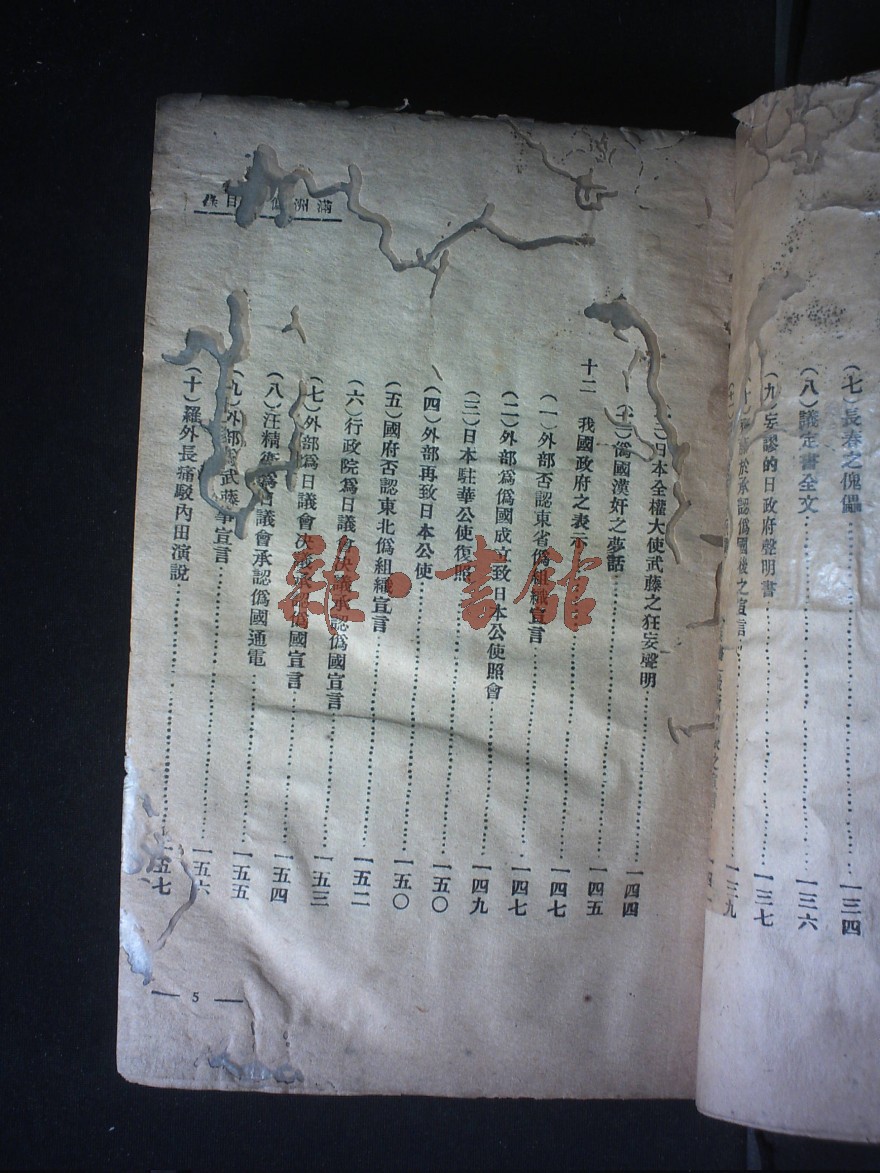 (七)長春之傀儡…………一三四
(八)議定書全文…………一三六
(九)妄謬的日政府聲明書…………一三七
於承認僞國後之宣言…………一三九
滿洲 目
日本全權大使武藤之狂妄聲明…………一四四
僞國漢奸之夢話…………一四五
十二 我國政府之表示…………一四七
(一)外部否認東省僞組織宣言…………一四七
(二)外部爲僞國成立致日本公使照會…………一四九
(三)日本駐華公使復照…………一五〇
(四)外部再致日本公使…………一五〇
(五)國府否認東北僞組織宣言…………一五二
(六)行政院爲日議會決議承認僞國宣言…………一五三
(七)外部爲日議會決議承認僞國宣言…………一五四
(八)汪精衛爲日議會承認僞國通電…………一五五
(九)外部爲武藤事宣言…………一五六
(十)羅外長痛駁內田演說…………一五七
— 5 —
雜·書館